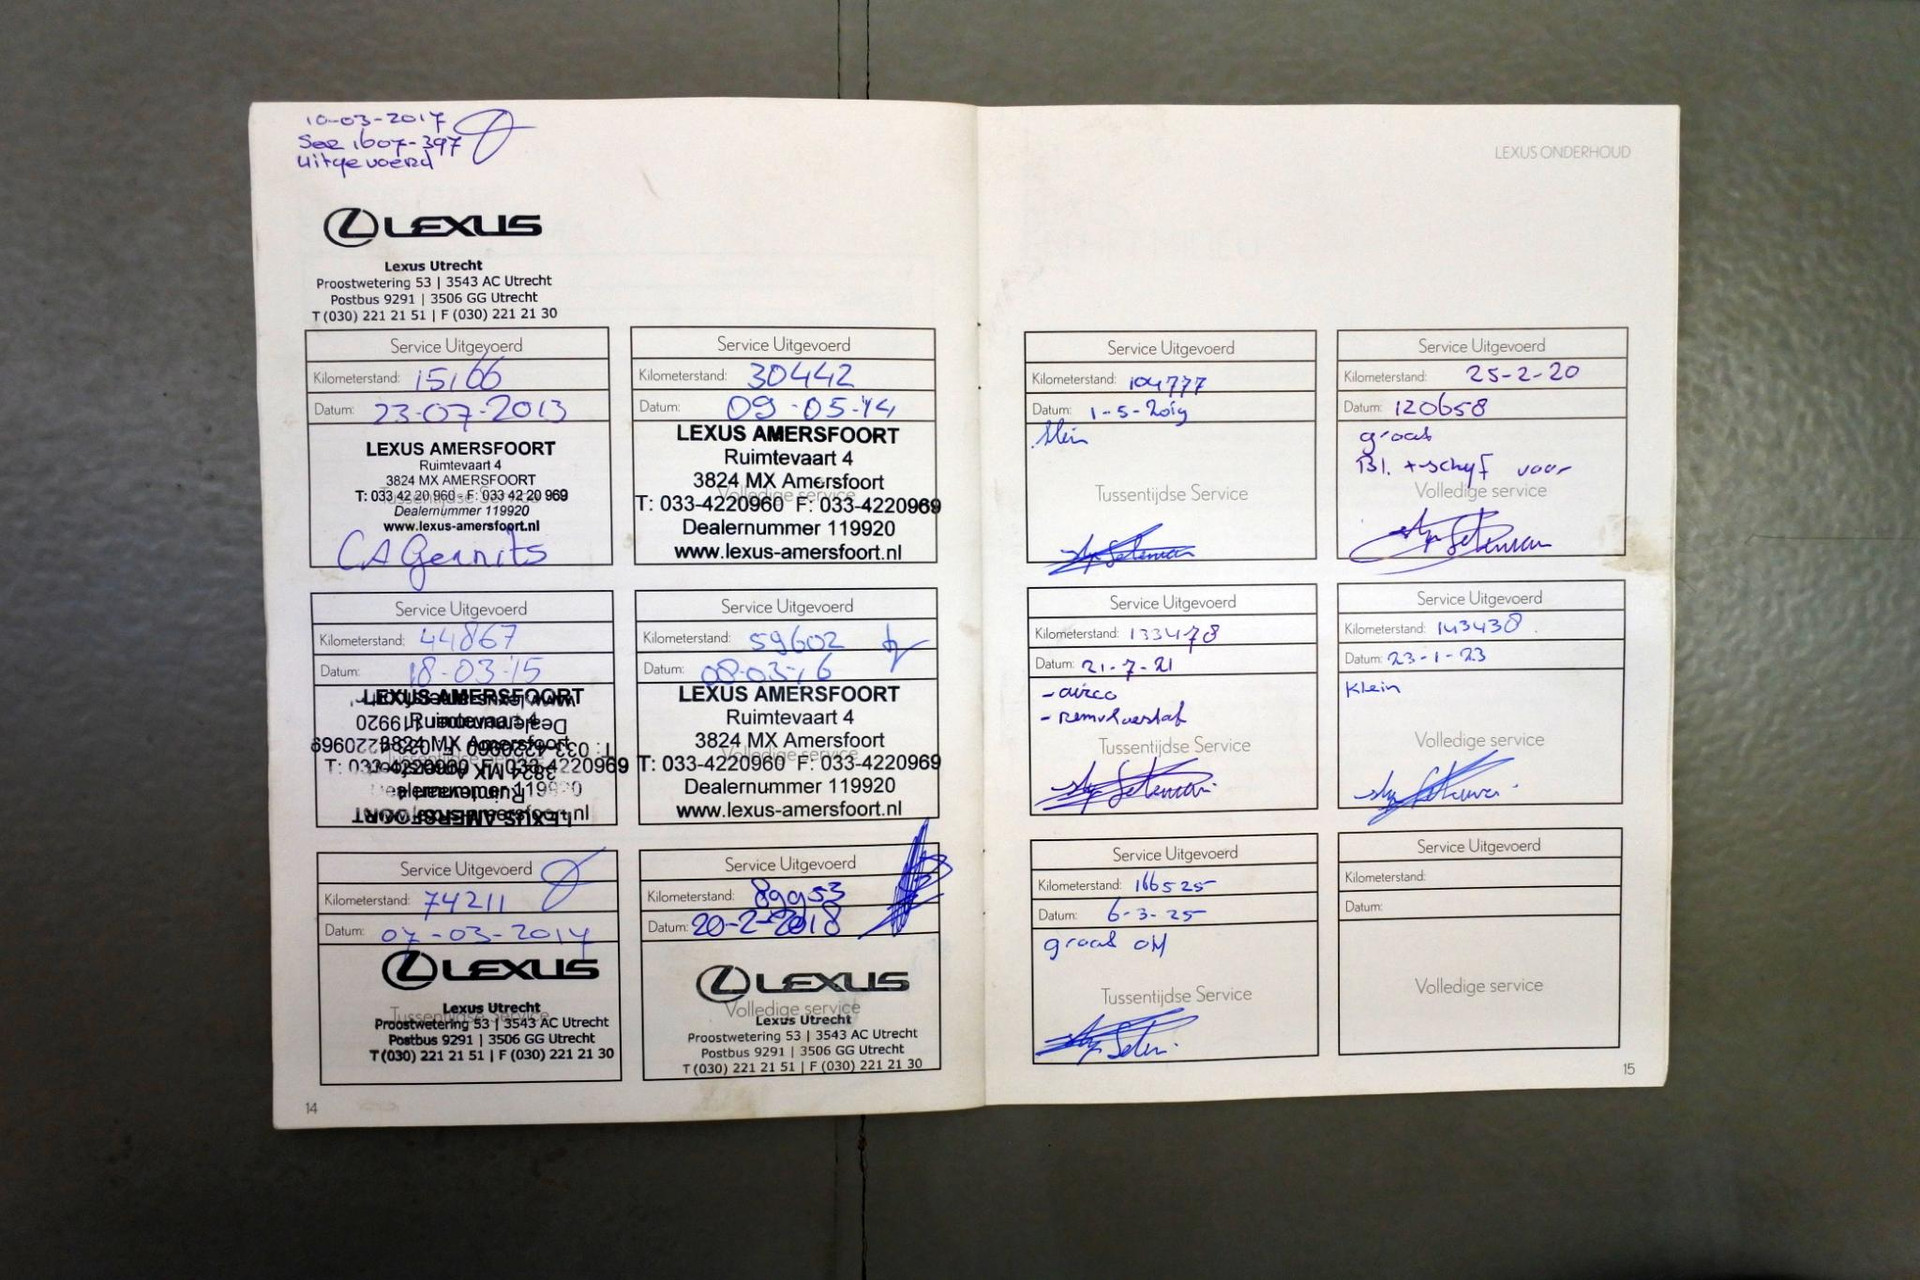 10-03-2017
uitgevoerd
LEXUS
Lexus Utrecht
Proostwetering 53 | 3543 AC Utrecht
Postbus 9291 | 3506 GG Utrecht
T (030) 221 21 51 | F (030) 221 21 30
Service Uitgevoerd
Kilometerstand: 15166
Datum: 23-07-2013
LEXUS AMERSFOORT
Ruimtevaart 4
3824 MX AMERSFOORT
T: 033 42 20 960 - F: 033 42 20 969
Tussentijdse Service
Dealernummer 119920
www.lexus-amersfoort.nl
CA Gerrits
Service Uitgevoerd
Kilometerstand: 30442
Datum: 09-05-14
LEXUS AMERSFOORT
Ruimtevaart 4
3824 MX Amersfoort
Volledige service
T: 033-4220960 F: 033-4220969
Dealernummer 119920
www.lexus-amersfoort.nl
Service Uitgevoerd
Kilometerstand: 44867
Datum: 18-03-15
LEXUS AMERSFOORT
Ruimtevaart 4
3824 MX Amersfoort
T: 033-4220960 F: 033-4220969
Dealernummer 119920
Service Uitgevoerd
Kilometerstand: 59602
Datum: 08-03-16
LEXUS AMERSFOORT
Ruimtevaart 4
3824 MX Amersfoort
Volledige service
T: 033-4220960 F: 033-4220969
Dealernummer 119920
www.lexus-amersfoort.nl
Service Uitgevoerd
Kilometerstand: 74211
Datum: 07-03-2017
LEXUS
Lexus Utrecht
Tussentijdse Service
Proostwetering 53 | 3543 AC Utrecht
Postbus 9291 | 3506 GG Utrecht
T (030) 221 21 51 | F (030) 221 21 30
Service Uitgevoerd
Kilometerstand: 89953
Datum: 20-2-2018
LEXUS
Volledige service
Lexus Utrecht
Proostwetering 53 | 3543 AC Utrecht
Postbus 9291 | 3506 GG Utrecht
T (030) 221 21 51 | F (030) 221 21 30
14
LEXUS ONDERHOUD
Service Uitgevoerd
Kilometerstand: 104777
Datum: 1-5-2019
klein
Tussentijdse Service
Service Uitgevoerd
Kilometerstand: 25-2-20
Datum: 120658
groot
Bl. + schijf voor
Volledige service
Service Uitgevoerd
Kilometerstand: 133478
Datum: 21-7-21
- airco
- remvloeistof
Tussentijdse Service
Service Uitgevoerd
Kilometerstand: 143438
Datum: 23-1-23
Klein
Volledige service
Service Uitgevoerd
Kilometerstand: 166525
Datum: 6-3-25
groot OH
Tussentijdse Service
Service Uitgevoerd
Kilometerstand:
Datum:
Volledige service
15